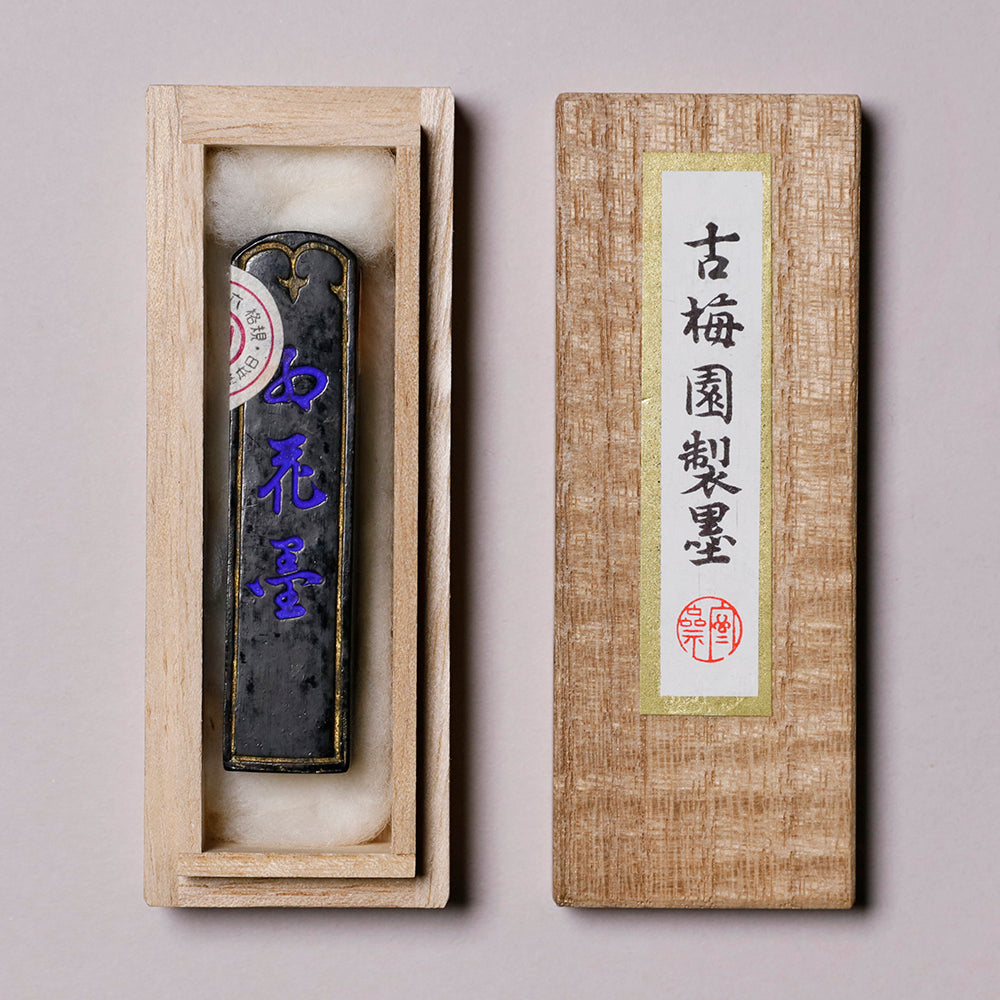 如花墨
格規・日本
古梅園製墨